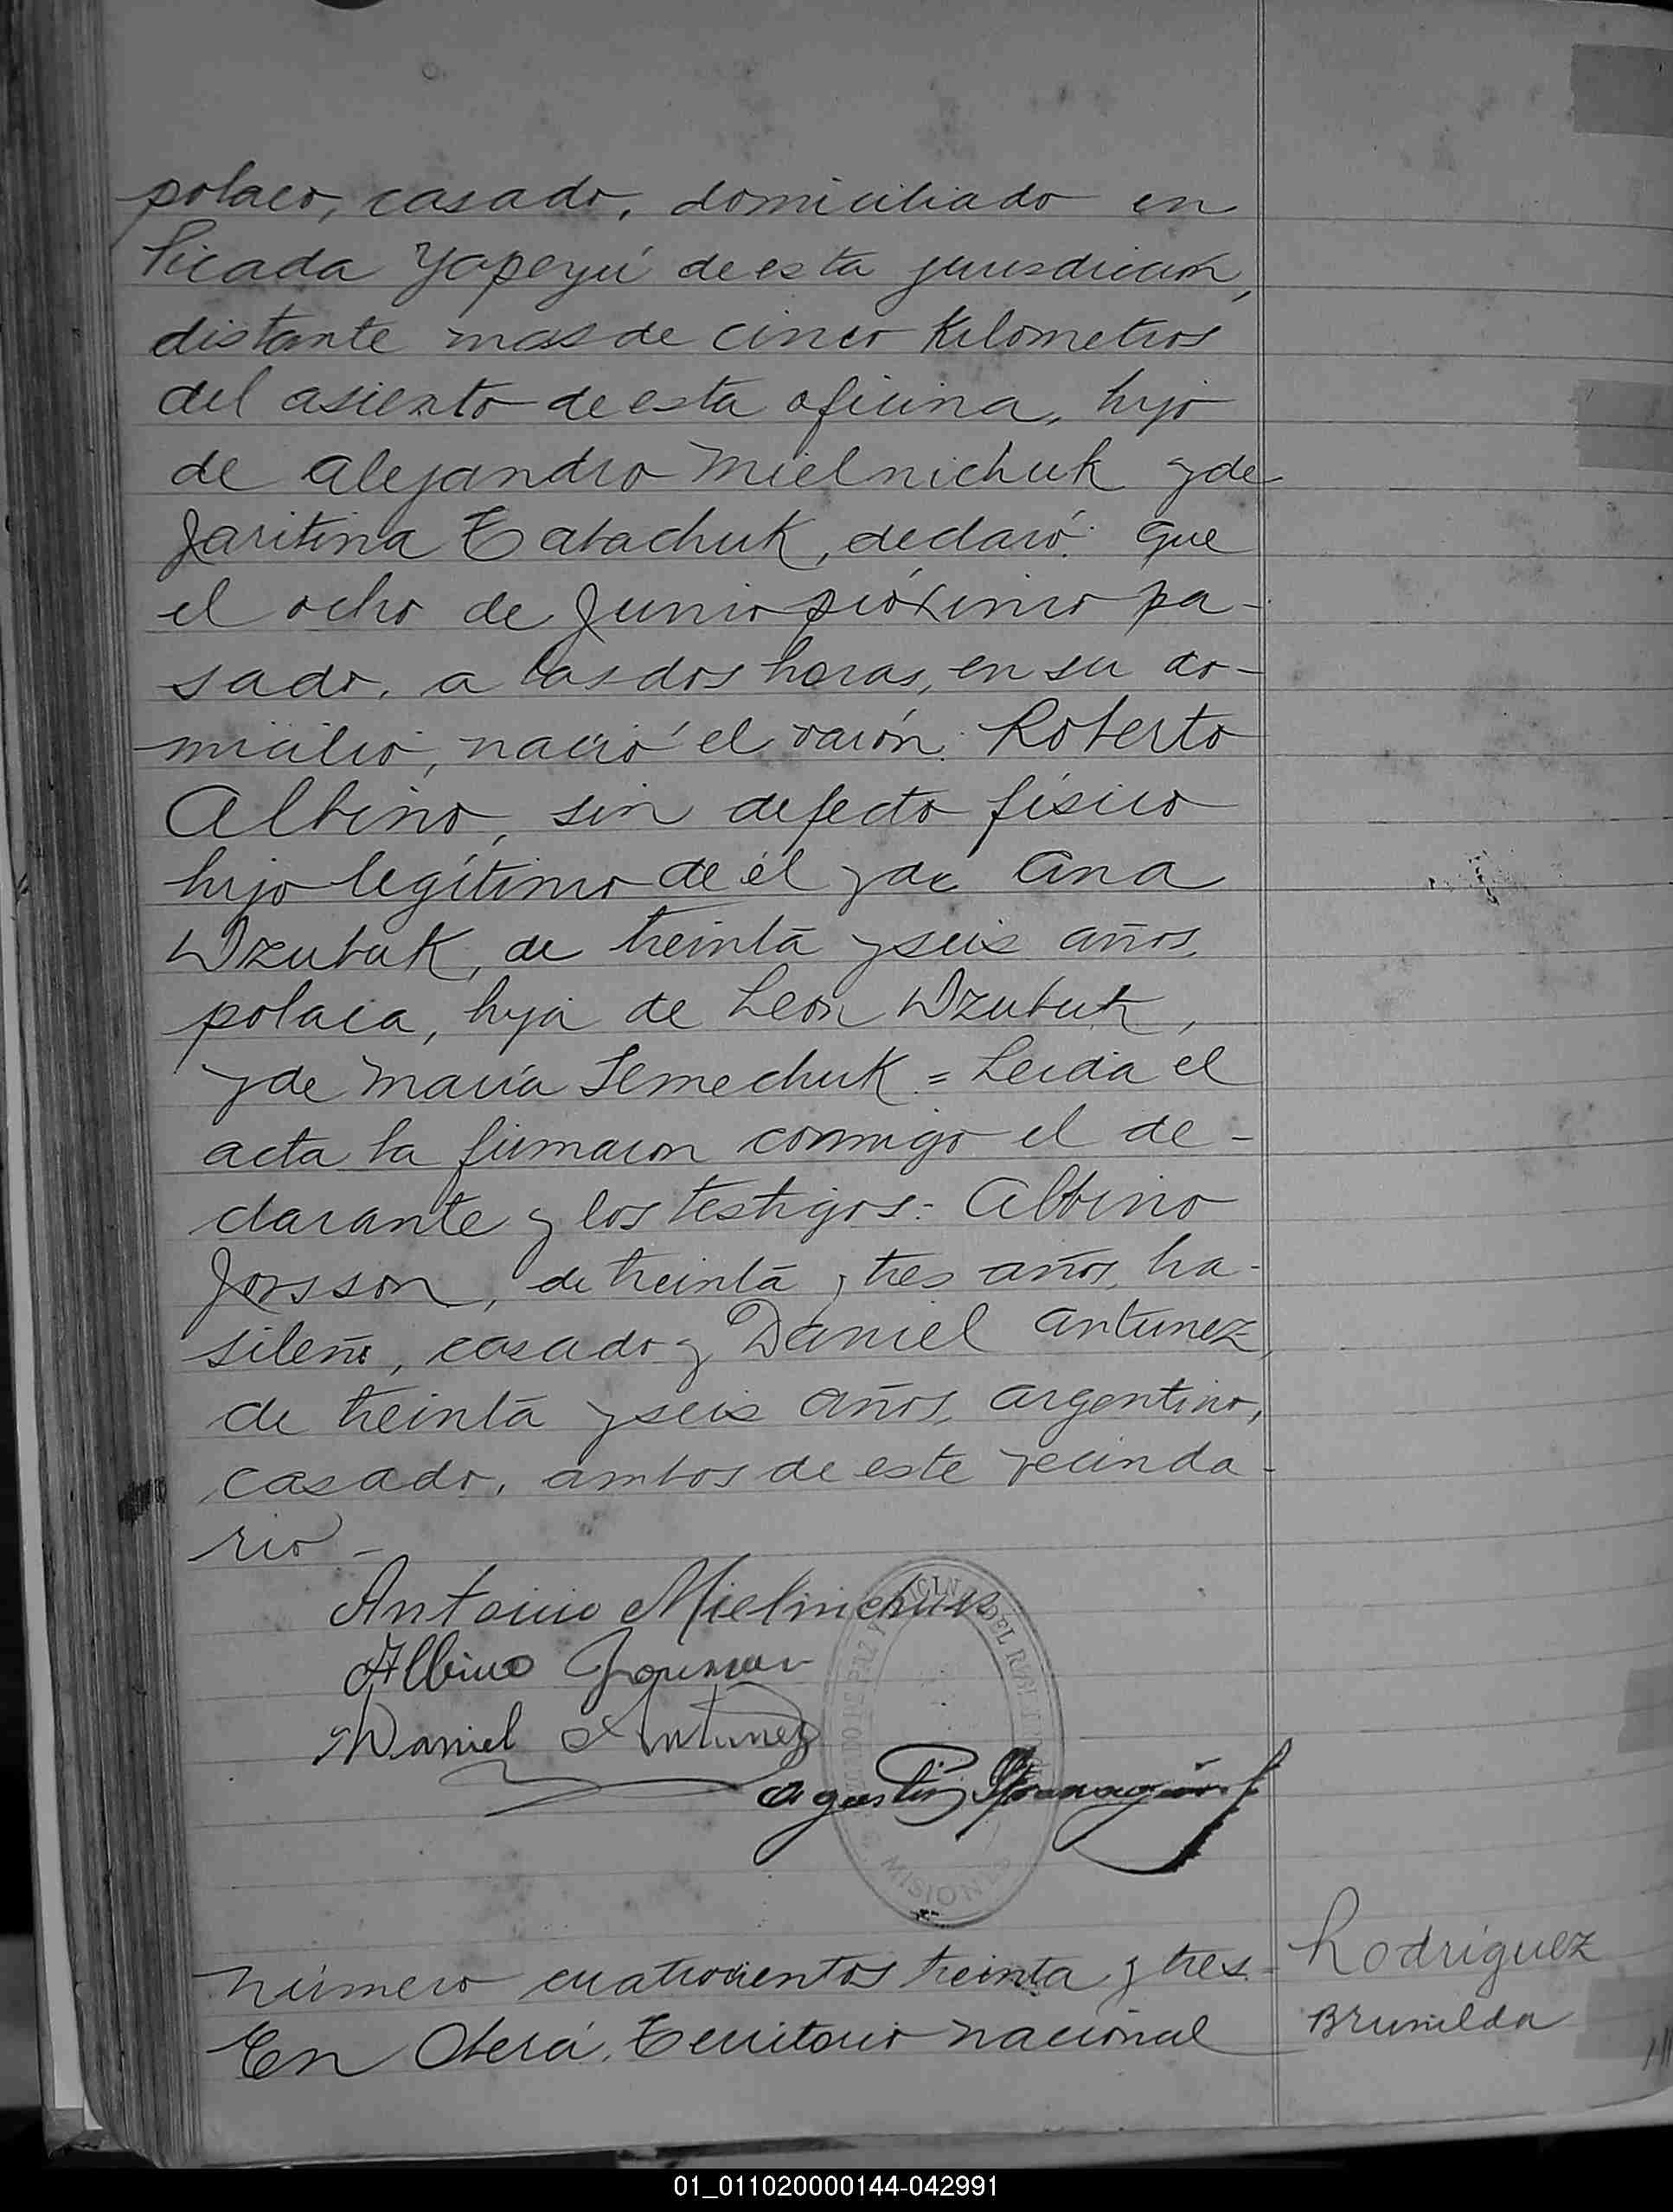 polaco, casado, domiciliado en
Picada Yapeyú de esta jurisdiccion,
distante mas de cinco Kilometros
del asiento de esta oficina, hijo
de Alejandro Mielnichuk y de
Jaritina Tatachuk, declaró: que
el ocho de Junio próximo pa-
sado, a las dos horas, en su do-
micilio, nació el varón: Roberto
Albino, sin defecto físico
hijo legítimo de él y de Ana
Dzubuk, de treinta y seis años,
polaca, hija de Leon Dzubuk,
y de María Semechuk = Leida el
acta la firmaron conmigo el de-
clarante y los testigos: Albino
Jonsson, de treinta y tres años, bra-
sileño, casado y Daniel Antunez,
de treinta y seis años, argentino,
casado, ambos de este vecinda-
rio -
Antonio Mielnichuk
Albino
Daniel Antunez
Agustin
MISIONES
Número cuatrocientos treinta y tres
En Oberá, Territorio nacional
Rodriguez
Brunilda
01_011020000144-042991